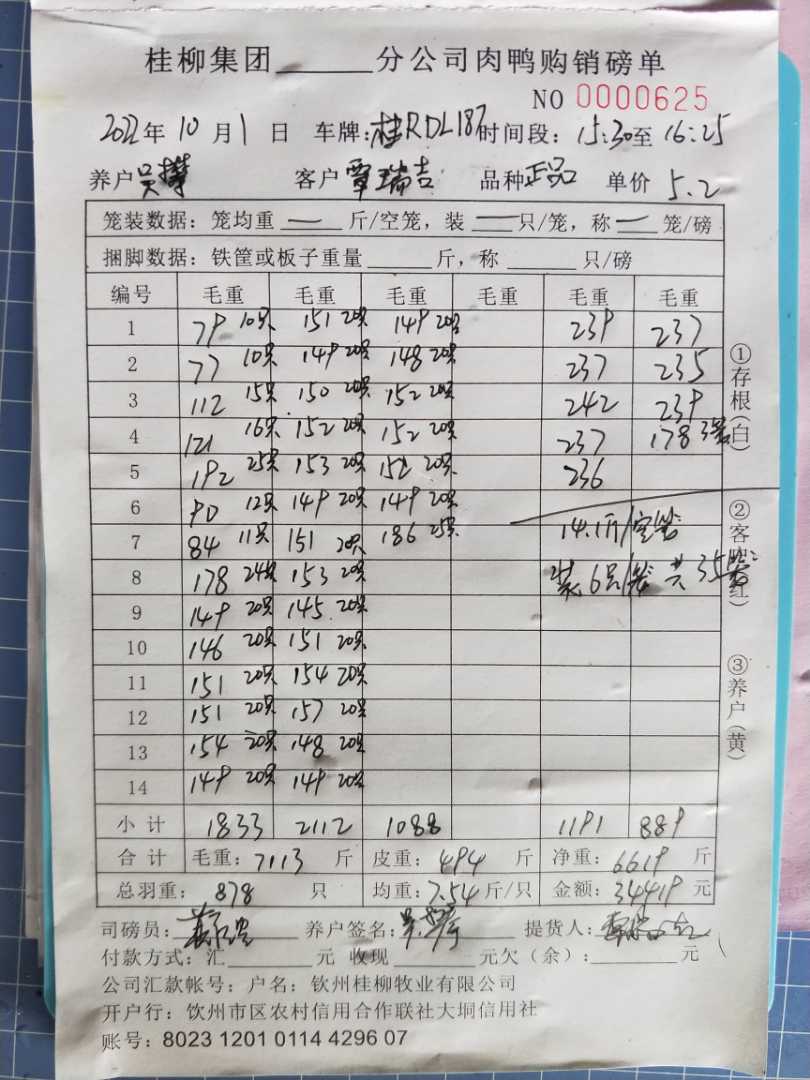 桂柳集团______分公司肉鸭购销磅单
NO 0000625
2022年 10 月 1 日 车牌:桂RDL187 时间段: 15:30至 16:25
养户 吴 客户 覃瑞吉 品种 正品 单价 5.2
笼装数据: 笼均重 — 斤/空笼, 装 — 只/笼, 称 — 笼/磅
捆脚数据: 铁筐或板子重量______斤, 称______只/磅
编号 毛重 毛重 毛重 毛重 毛重 毛重
1 79 10只 151 20只 149 20只 239 237
2 77 10只 149 20只 148 20只 237 235
3 112 15只 150 20只 152 20只 242 239
4 121 16只 152 20只 152 20只 237 178 3笼
5 192 25只 153 20只 152 20只 236
6 90 12只 149 20只 149 20只
7 84 11只 151 20只 186 25只 14.1斤/空笼
8 178 24只 153 20只 装6只/笼 共35笼
9 149 20只 145 20只
10 146 20只 151 20只
11 151 20只 154 20只
12 151 20只 157 20只
13 154 20只 148 20只
14 149 20只 149 20只
小计 1833 2112 1088 1191 889
合计 毛重: 7113 斤 皮重: 494 斤 净重: 6619 斤
总羽重: 878 只 均重: 7.54 斤/只 金额: 34419 元
司磅员: 养户签名: 提货人:
付款方式: 汇______元 收现______元欠(余):______元
公司汇款帐号: 户名: 钦州桂柳牧业有限公司
开户行: 钦州市区农村信用合作联社大垌信用社
账号: 8023 1201 0114 4296 07
①存根(白)
②客户(红)
③养户(黄)